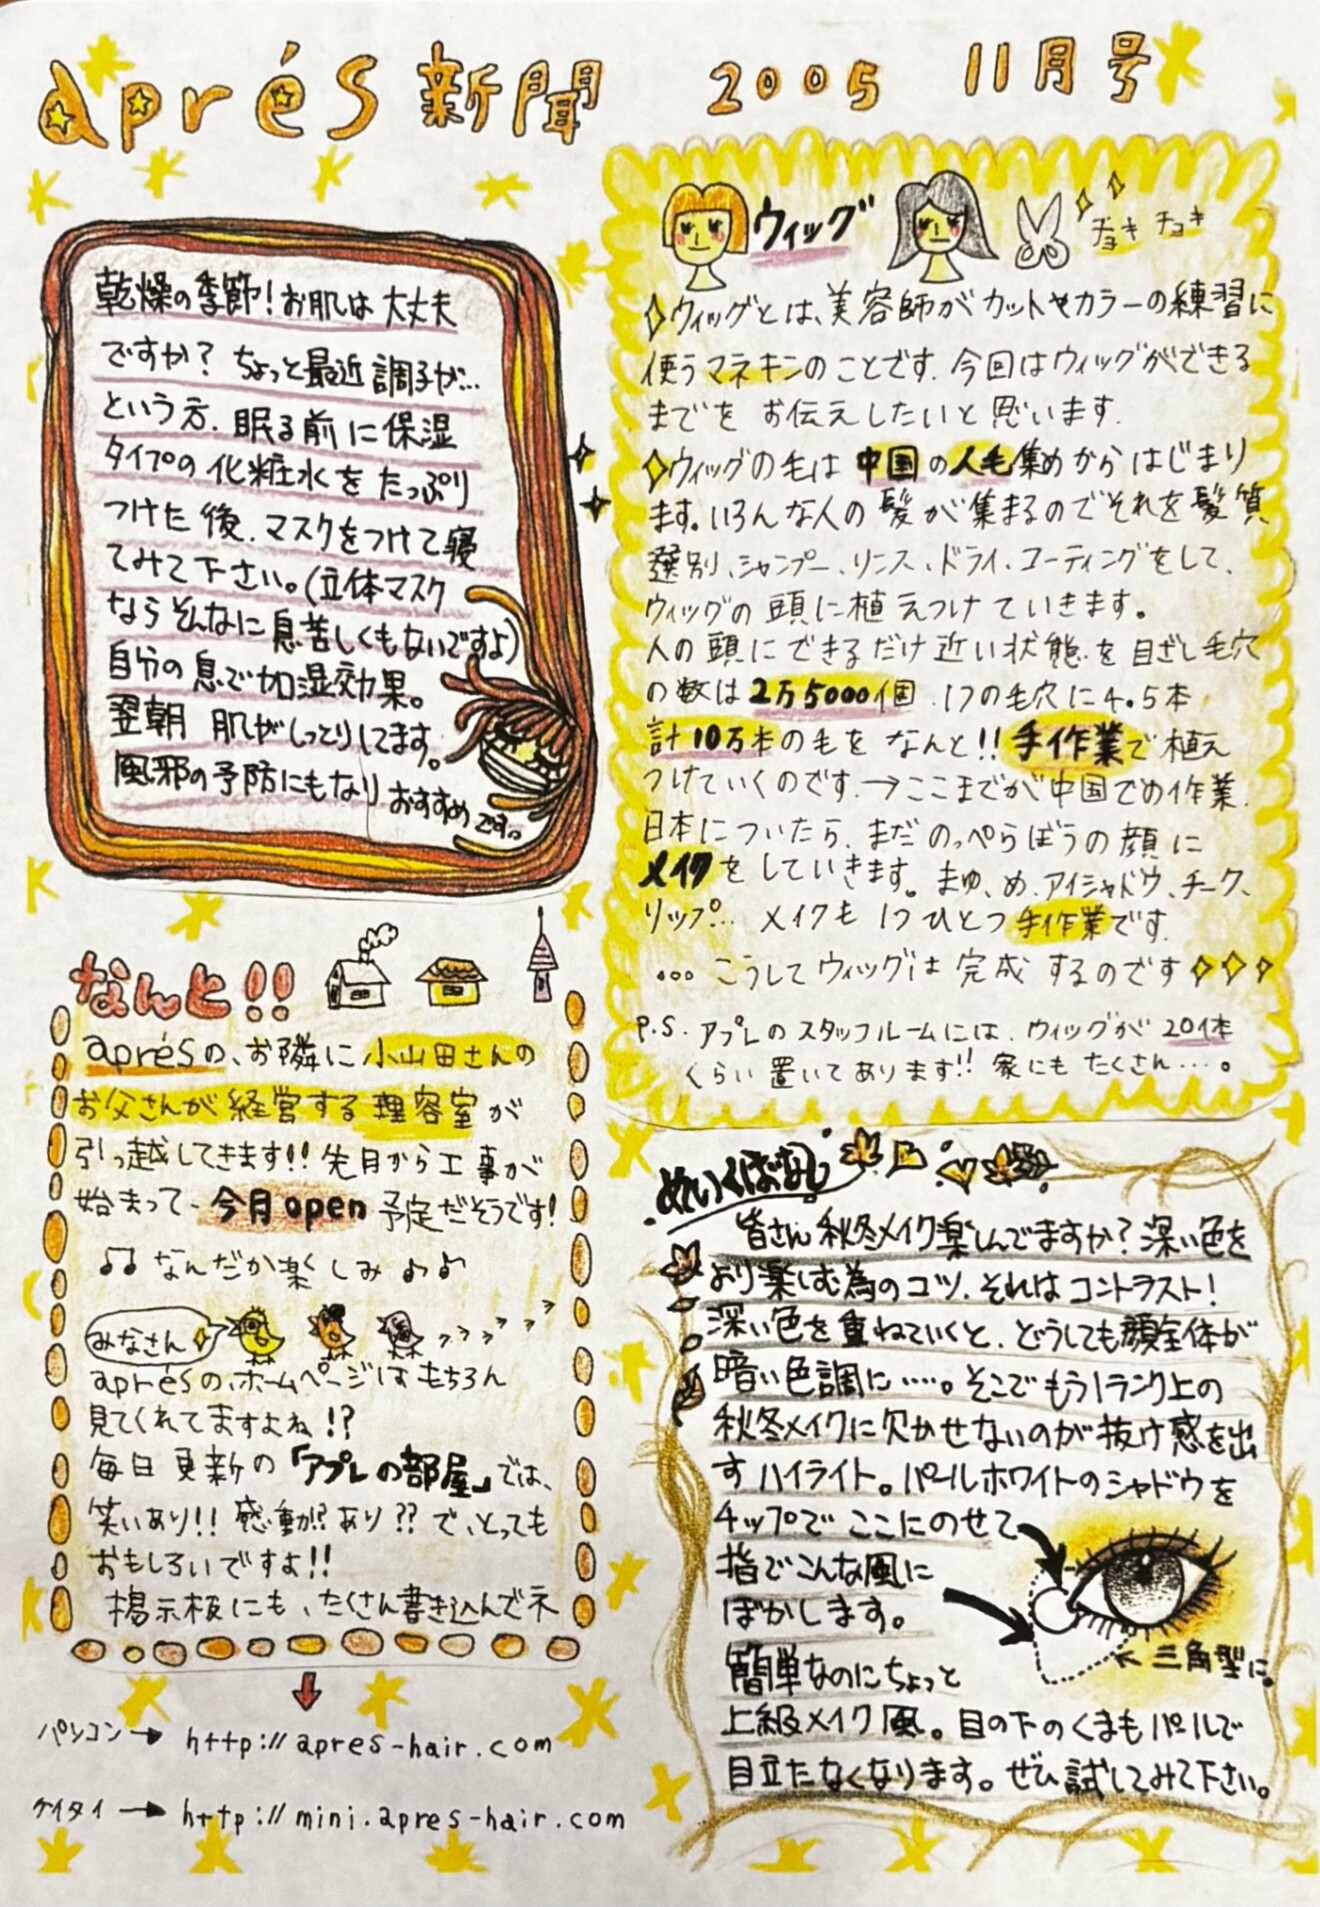 aprés 新聞 2005 11月号
乾燥の季節！お肌は大丈夫
ですか？ ちょっと最近調子が…
という方、眠る前に保湿
タイプの化粧水をたっぷり
つけた後、マスクをつけて寝
てみて下さい。(立体マスク
ならそんなに息苦しくもないですよ)
自分の息で加湿効果。
翌朝 肌がしっとりしてます。
風邪の予防にもなりおすすめです。
ウィッグ
チョキ チョキ
ウィッグとは、美容師がカットやカラーの練習に
使うマネキンのことです。今回はウィッグができる
までを お伝えしたいと思います。
ウィッグの毛は 中国の人毛集めからはじまり
ます。いろんな人の髪が集まるのでそれを髪質
選別、シャンプー、リンス、ドライ、コーティングをして、
ウィッグの頭に植えつけていきます。
人の頭にできるだけ近い状態を目ざし毛穴
の数は2万5000個。1つの毛穴に4.5本
計10万本の毛を なんと!! 手作業で植え
つけていくのです。→ここまでが中国での作業。
日本についたら、まだのっぺらぼうの顔に
メイクをしていきます。まゆ、め、アイシャドウ、チーク、
リップ… メイクも1つひとつ手作業です。
… こうしてウィッグは完成するのです
P.S. アプレのスタッフルームには、ウィッグが20体
くらい置いてあります!! 家にもたくさん…。
なんと!!
aprésの、お隣に小山田さんの
お父さんが経営する理容室が
引っ越してきます!! 先月から工事が
始まって、今月open予定だそうです！
♫ なんだか楽しみ ♪♪
みなさん
aprésのホームページはもちろん
見てくれてますよね!?
毎日更新の「アプレの部屋」では、
笑いあり!! 感動!?あり?? で、とっても
おもしろいですよ!!
掲示板にも、たくさん書き込んでネ
パソコン→ http://apres-hair.com
ケイタイ→ http://mini.apres-hair.com
めいくばなし
皆さん秋冬メイク楽しんでますか？深い色を
より楽しむ為のコツ、それはコントラスト！
深い色を重ねていくと、どうしても顔全体が
暗い色調に…。そこでもう1ランク上の
秋冬メイクに欠かせないのが抜け感を出
すハイライト。パールホワイトのシャドウを
チップで ここにのせて
指でこんな風に
ぼかします。
← 三角型に。
簡単なのにちょっと
上級メイク風。目の下のくまもパールで
目立たなくなります。ぜひ試してみて下さい。